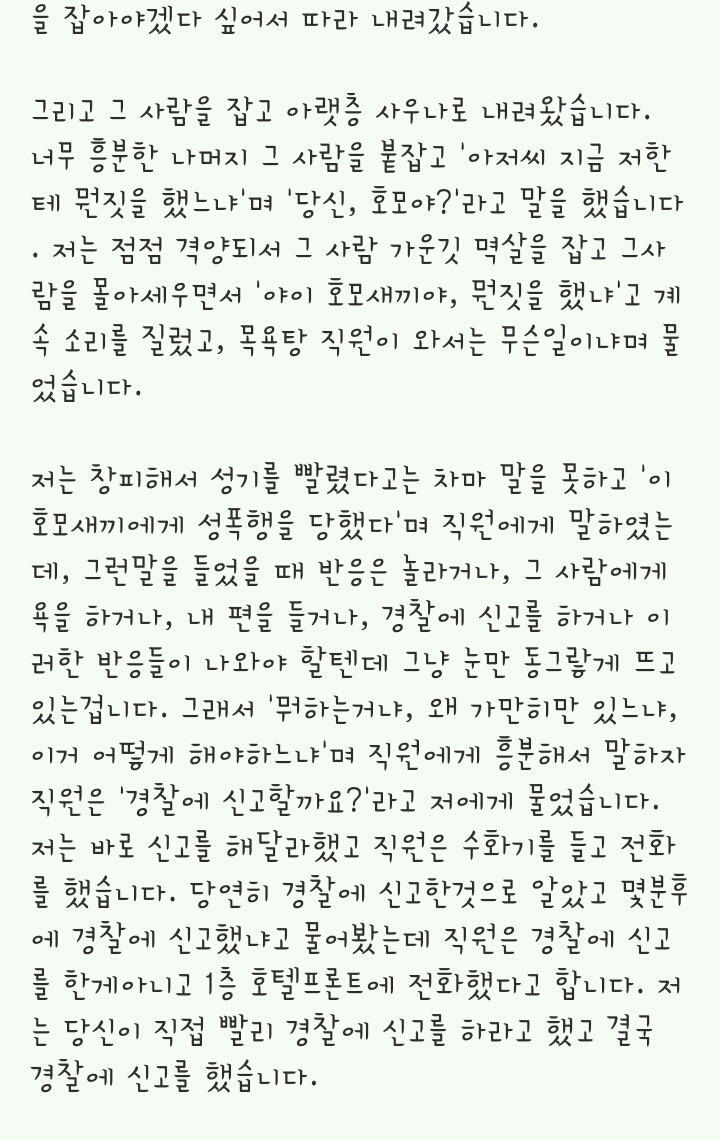 을 잡아야겠다 싶어서 따라 내려갔습니다.
그리고 그 사람을 잡고 아랫층 사우나로 내려왔습니다.
너무 흥분한 나머지 그 사람을 붙잡고 '아저씨 지금 저한
테 뭔짓을 했느냐'며 '당신, 호모야?'라고 말을 했습니다
. 저는 점점 격양되서 그 사람 가운깃 멱살을 잡고 그사
람을 몰아세우면서 '야이 호모새끼야, 뭔짓을 했냐'고 계
속 소리를 질렀고, 목욕탕 직원이 와서는 무슨일이냐며 물
었습니다.
저는 창피해서 성기를 빨렸다고는 차마 말을 못하고 '이
호모새끼에게 성폭행을 당했다'며 직원에게 말하였는
데, 그런말을 들었을 때 반응은 놀라거나, 그 사람에게
욕을 하거나, 내 편을 들거나, 경찰에 신고를 하거나 이
러한 반응들이 나와야 할텐데 그냥 눈만 동그랗게 뜨고
있는겁니다. 그래서 '뭐하는거냐, 왜 가만히만 있느냐,
이거 어떻게 해야하느냐'며 직원에게 흥분해서 말하자
직원은 '경찰에 신고할까요?'라고 저에게 물었습니다.
저는 바로 신고를 해달라했고 직원은 수화기를 들고 전화
를 했습니다. 당연히 경찰에 신고한것으로 알았고 몇분후
에 경찰에 신고했냐고 물어봤는데 직원은 경찰에 신고
를 한게아니고 1층 호텔프론트에 전화했다고 합니다. 저
는 당신이 직접 빨리 경찰에 신고를 하라고 했고 결국
경찰에 신고를 했습니다.